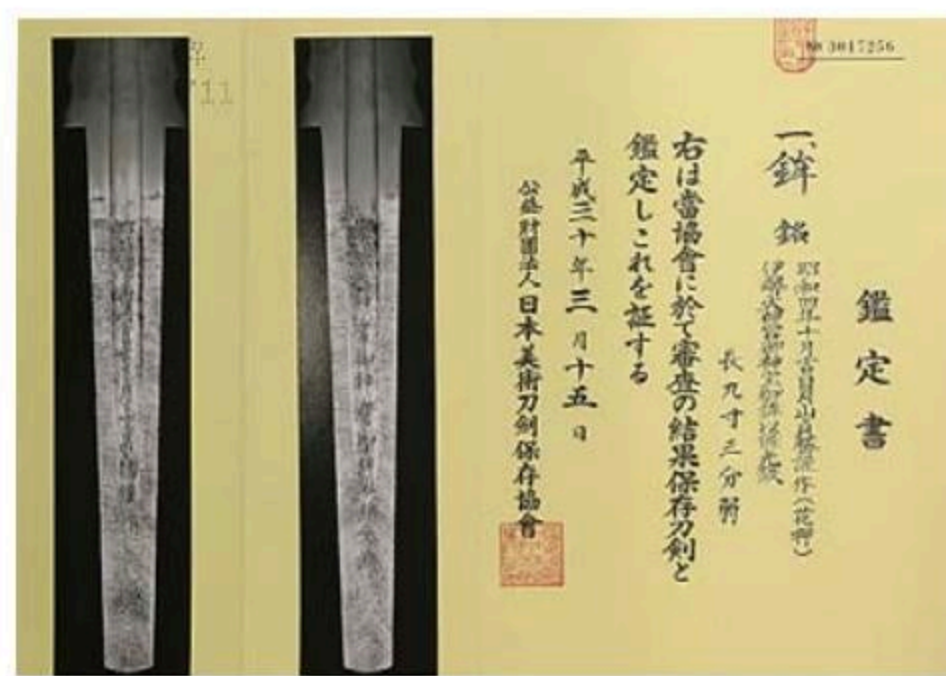 No 3017256
鑑定書
一、鉾 銘 昭和四年十月吉日月山貞勝謹作（花押）
伊勢大神宮御神宝
長九寸三分弱
右は當協會に於て審査の結果保存刀剣と
鑑定しこれを証する
平成三十年三月十五日
公益財團法人日本美術刀剣保存協會